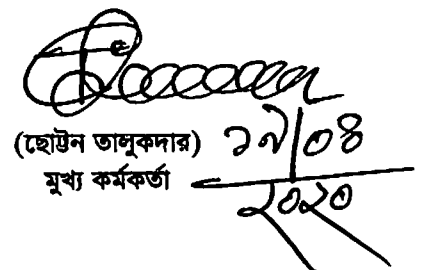 (ছোট্টন তালুকদার) ০৪
মুখ্য কর্মকর্তা ২০২০